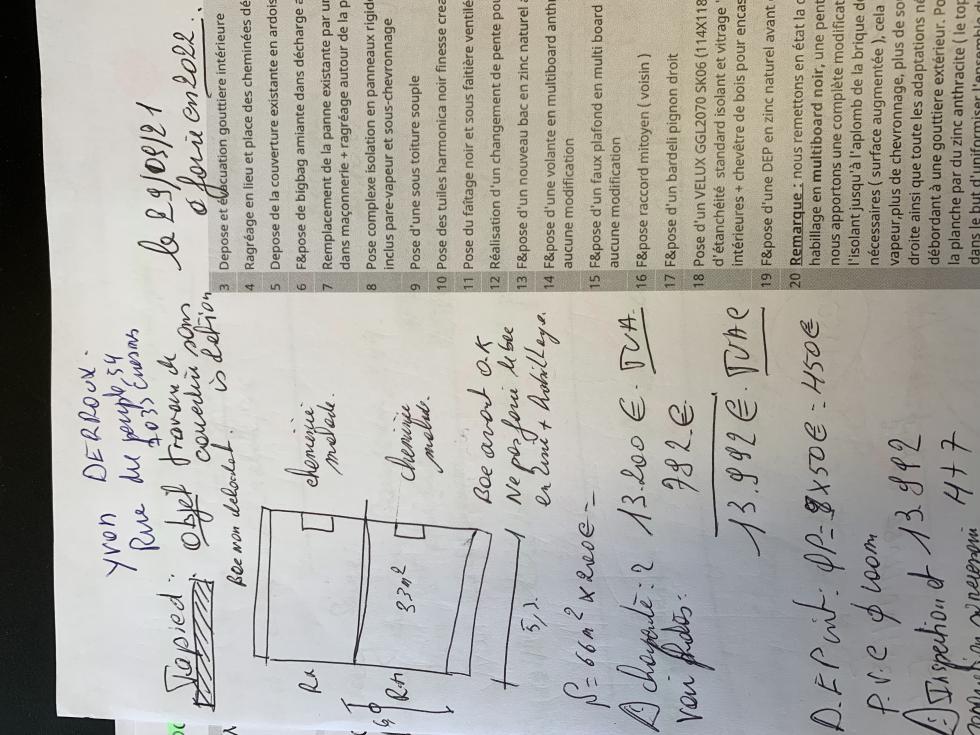 Yvon DERROUX.
Rue du peuple, 54
7033 Cuesmes
le 29/09/21
Tapied:
objet travaux de
couverture sans
isolation
à fournir en 2022.
Bac non
cheminée
cheminée
33m²
5,
Bac avant O.K
Ne pas
en zinc + habillage.
S = 66m² x 200€ =
charpente: ? 13.200 €. TVA.
792 €.
13.992 €. TVAC
D.EP int. PP = 9 x 50€ = 450€
P.V.C ϕ 100m
Inspection et 13.992
4+7
3 Depose et évacuation gouttiere intérieure
4 Ragréage en lieu et place des cheminées dé
5 Depose de la couverture existante en ardois
6 F&pose de bigbag amiante dans décharge a
7 Remplacement de la panne existante par un
dans maçonnerie + ragréage autour de la p
8 Pose complexe isolation en panneaux rigid
inclus pare-vapeur et sous-chevronnage
9 Pose d'une sous toiture souple
10 Pose des tuiles harmonica noir finesse crea
11 Pose du faîtage noir et sous faitière ventilé
12 Réalisation d'un changement de pente pou
13 F&pose d'un nouveau bac en zinc naturel a
14 F&pose d'une volante en multiboard anthr
aucune modification
15 F&pose d'un faux plafond en multi board
aucune modification
16 F&pose raccord mitoyen ( voisin )
17 F&pose d'un bardeli pignon droit
18 Pose d'un VELUX GGL2070 SK06 (114X118
d'étanchéité standard isolant et vitrage
intérieures + chevêtre de bois pour encas
19 F&pose d'une DEP en zinc naturel avant
20 Remarque : nous remettons en état la c
habillage en multiboard noir, une pent
nous apportons une complète modificat
l'isolant jusqu'à l'aplomb de la brique de
nécessaires ( surface augmentée ), cela
vapeur,plus de chevronnage, plus de sou
droite ainsi que toute les adaptations né
débordant à une gouttiere extérieur. Po
la planche par du zinc anthracite ( le top
dans le but d'uniformiser l'ensemble du